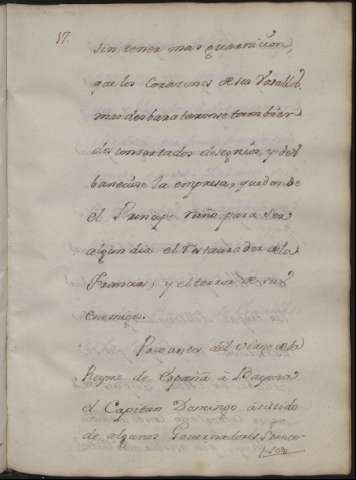 17.
sin tener mas guarnicion,
que los Corazones de sus Vasallos,
mas desbarataronse tambien
desconsertados designios, y des
baneciose la empresa, quedando
el Principe niño para ser
algun dia el restaurador de la
Francia, y el terror de sus
enemigos.
Poco antes del viage de la
Reyna de España à Bayona
el Capitan Domingo, asistido
de algunos Governadores Fronce-